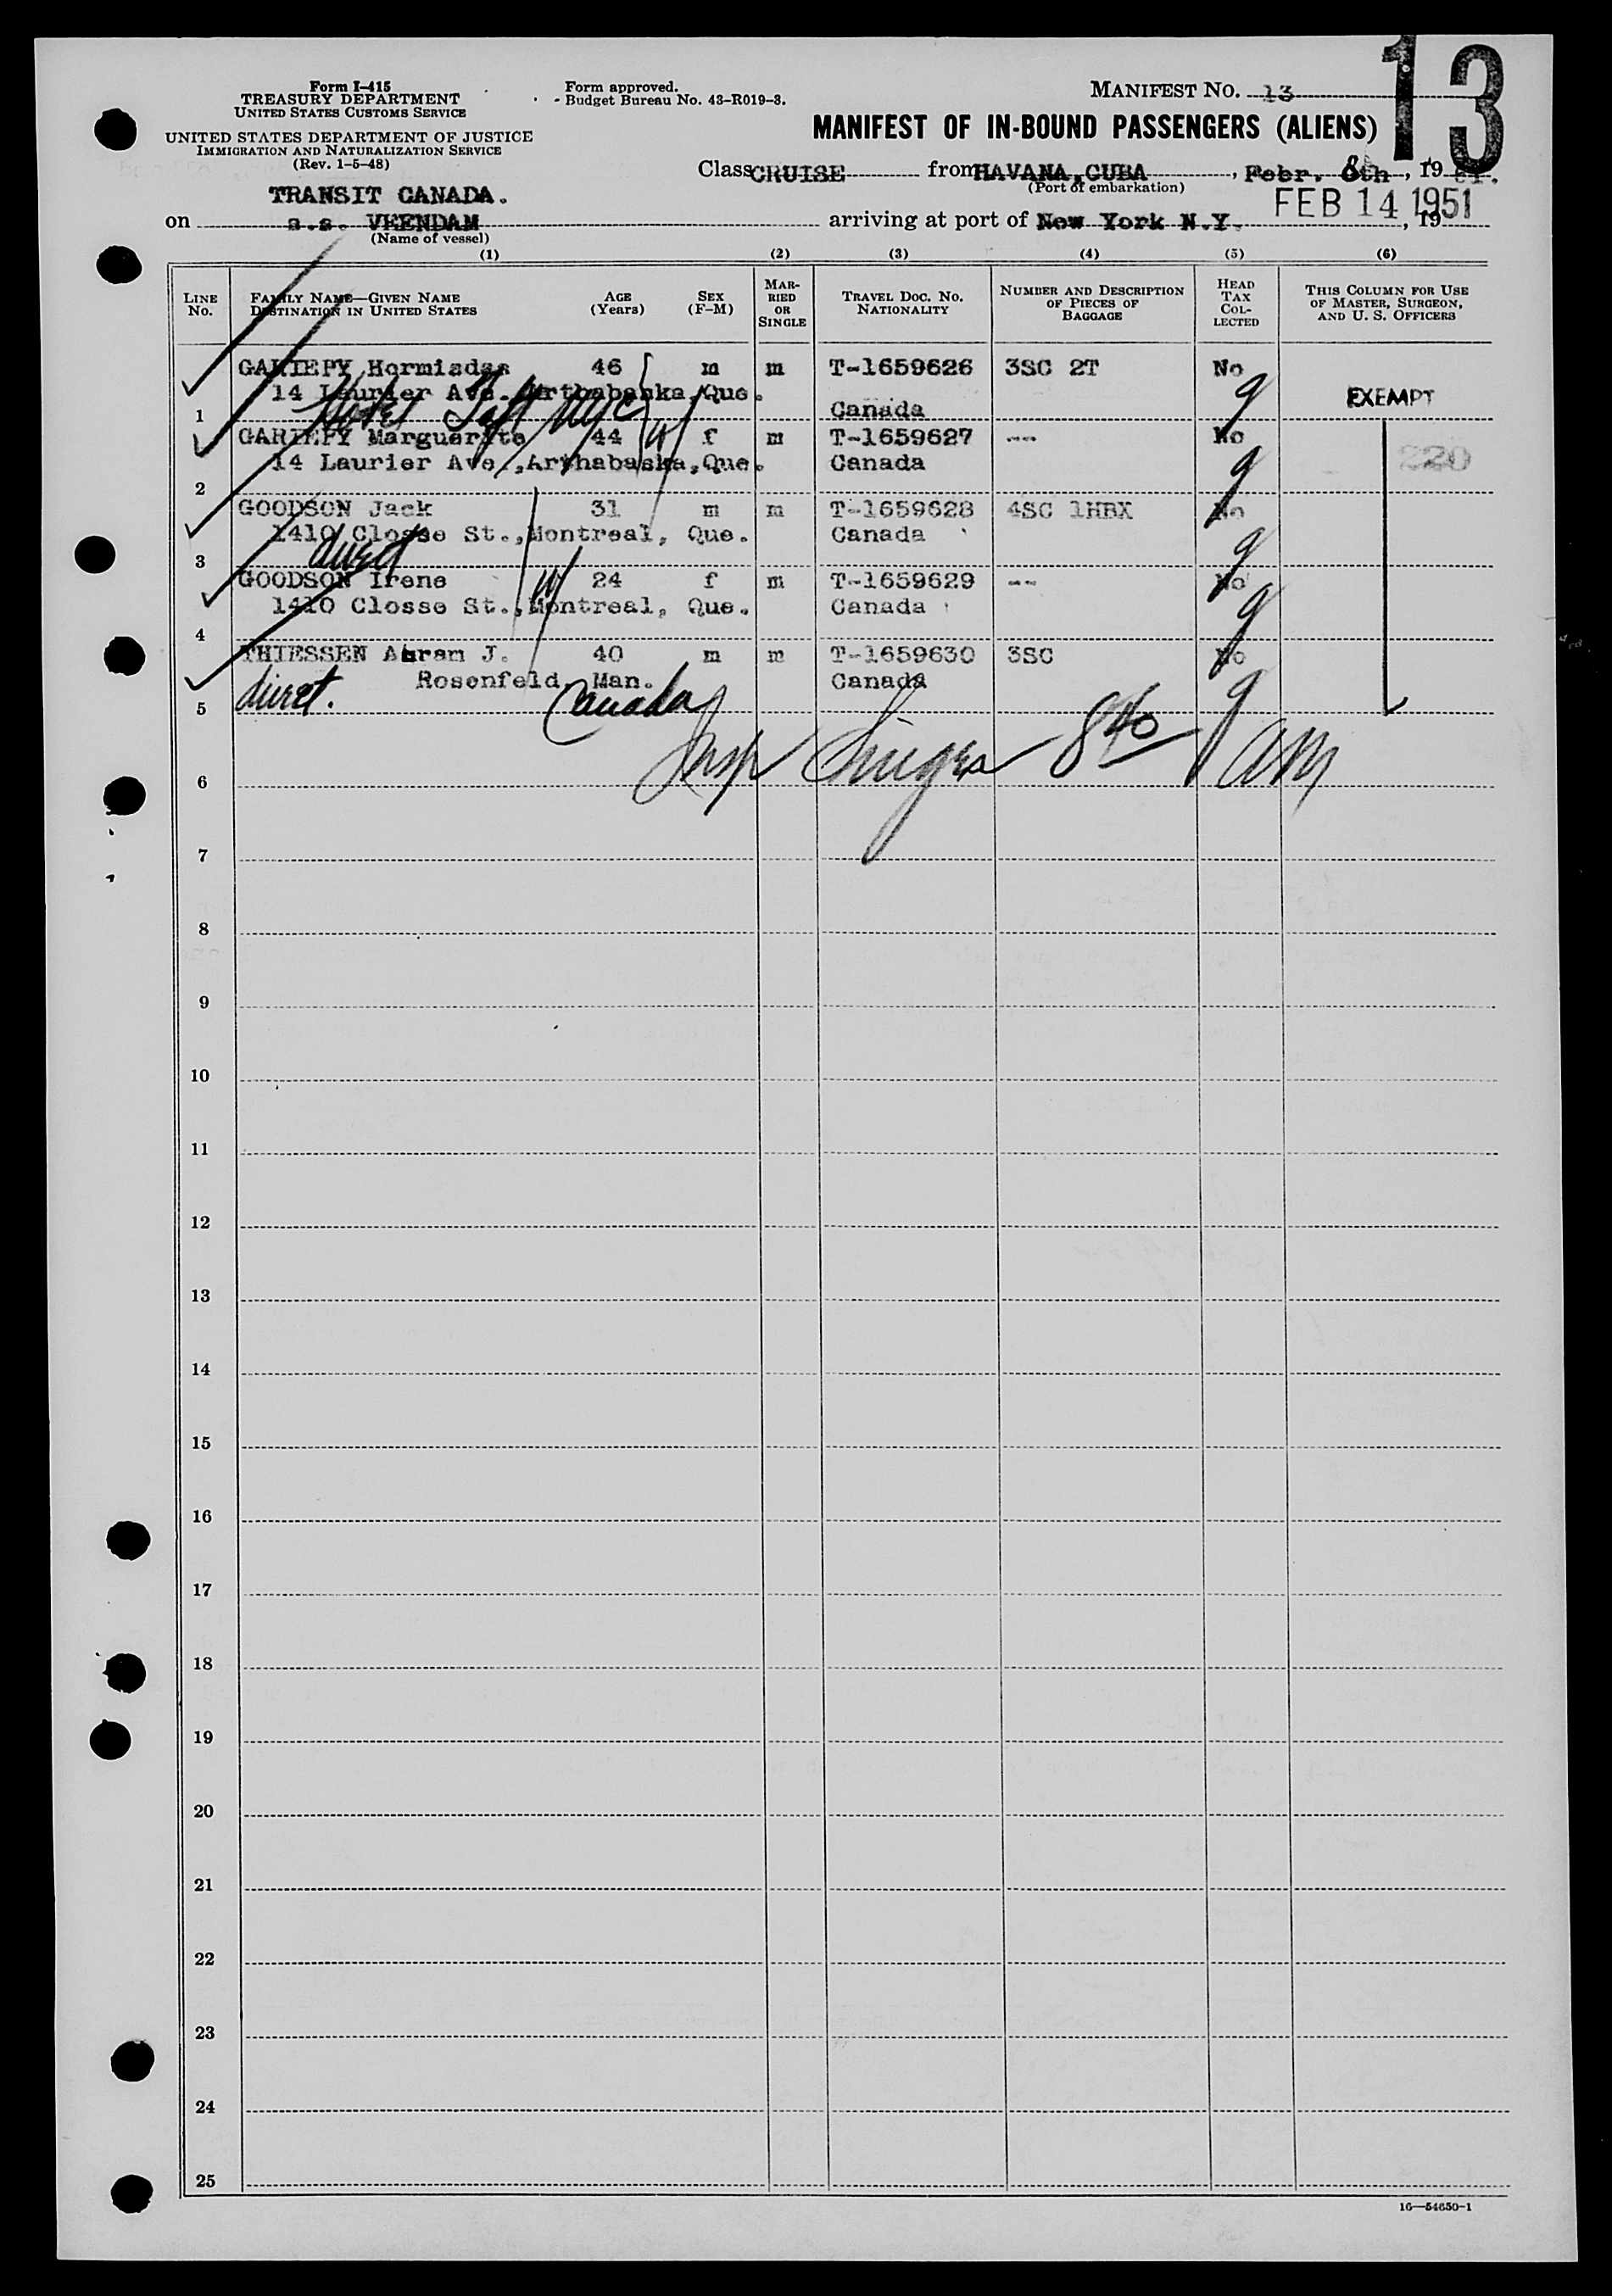 13
Form I-415
TREASURY DEPARTMENT
UNITED STATES CUSTOMS SERVICE
UNITED STATES DEPARTMENT OF JUSTICE
IMMIGRATION AND NATURALIZATION SERVICE
(Rev. 1-5-48)
Form approved.
Budget Bureau No. 43-R019-3.
MANIFEST NO. 13
MANIFEST OF IN-BOUND PASSENGERS (ALIENS)
Class CRUISE from HAVANA, CUBA, Febr. 8th, 19 51.
(Port of embarkation)
TRANSIT CANADA.
on s.s. VEENDAM arriving at port of New York N.Y. FEB 14 1951, 19
(Name of vessel)
(1) (2) (3) (4) (5) (6)
LINE NO. FAMILY NAME—GIVEN NAME DESTINATION IN UNITED STATES AGE (YEARS) SEX (F-M) MARRIED OR SINGLE TRAVEL DOC. NO. NATIONALITY NUMBER AND DESCRIPTION OF PIECES OF BAGGAGE HEAD TAX COLLECTED THIS COLUMN FOR USE OF MASTER, SURGEON, AND U. S. OFFICERS
GARIEPY Hormisdas 46 m m T-1659626 3SC 2T No
14 Laurier Ave. Arthabaska, Que. Canada EXEMPT
1 Hotel Taft NYC
GARIEPY Marguerite 44 f m T-1659627 -- No
14 Laurier Ave., Arthabaska, Que. Canada 220
2
GOODSON Jack 31 m m T-1659628 4SC 1HBX No
1410 Closse St., Montreal, Que. Canada
3 direct
GOODSON Irene 24 f m T-1659629 -- No
1410 Closse St., Montreal, Que. Canada
4
THIESSEN Abram J. 40 m m T-1659630 3SC No
Rosenfeld, Man. Canada
5 direct. Canada
6 Insp Singer 840 am
7
8
9
10
11
12
13
14
15
16
17
18
19
20
21
22
23
24
25
16—54650-1